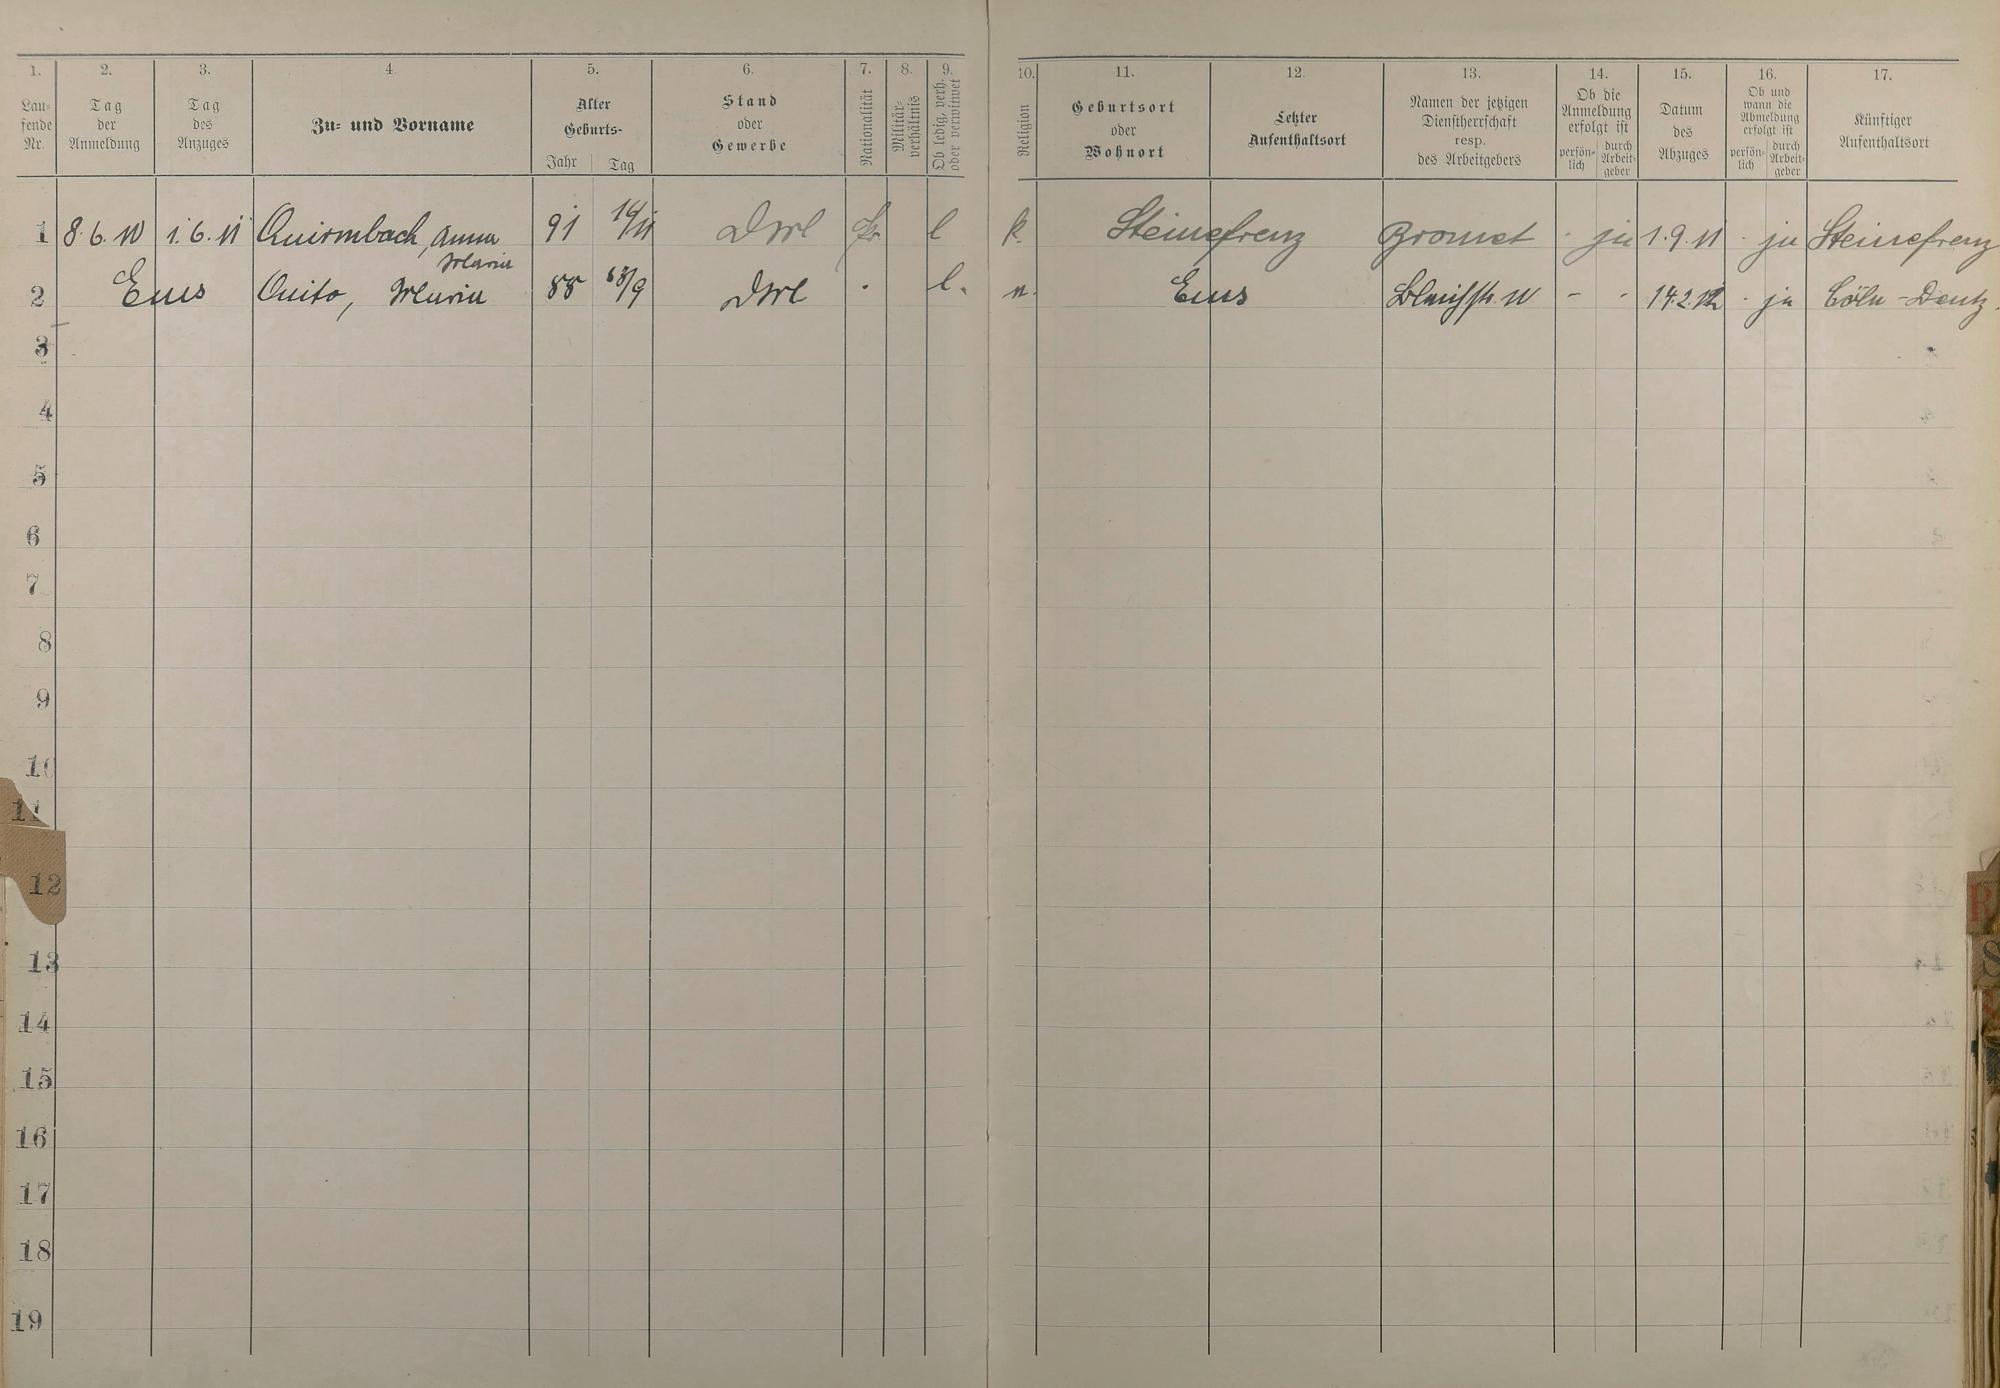 1. 2. 3. 4. 5. 6. 7. 8. 9. 10. 11. 12. 13. 14. 15. 16. 17.
Lau-
fende
Nr.
Tag
der
Anmeldung
Tag
des
Anzuges
Zu- und Vorname
Alter
Geburts-
Jahr Tag
Stand
oder
Gewerbe
Nationalität
Militär-
verhältnis
Ob ledig, verh.
oder verwitwet
Religion
Geburtsort
oder
Wohnort
Letzter
Aufenthaltsort
Namen der jetzigen
Dienstherrschaft
resp.
des Arbeitgebers
Ob die
Anmeldung
erfolgt ist
persön-
lich
durch
Arbeit-
geber
Datum
des
Abzuges
Ob und
wann die
Abmeldung
erfolgt ist
persön-
lich
durch
Arbeit-
geber
Künftiger
Aufenthaltsort
1 8.6.11 1.6.11 Quirmbach, Anna 91 l k. Steinefrenz Bromet ja 1.9.11 ja Steinefrenz
Maria
2 Ems Quito, Maria 88 l. Ems - 14.2.12 ja Cöln-Deutz.
3
4
5
6
7
8
9
10
11
12
13
14
15
16
17
18
19
R
S